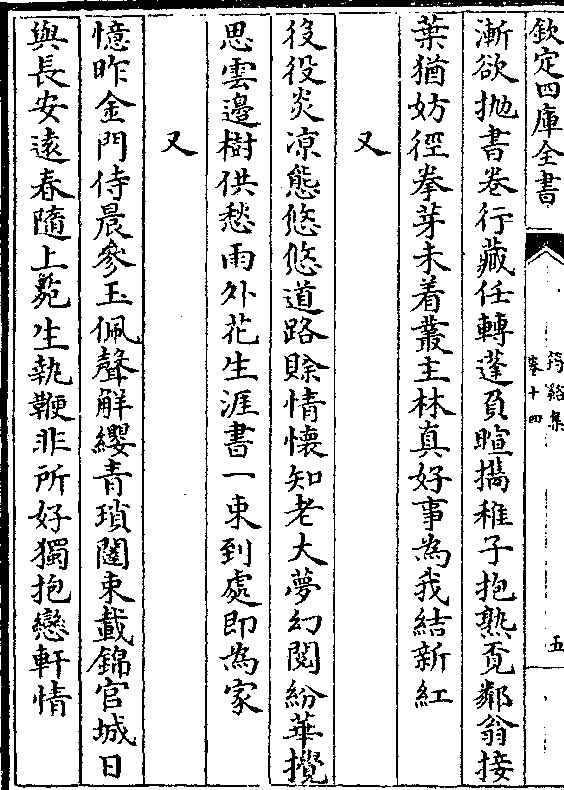 欽定四庫全書
筠谿集
卷十四
五
漸欲抛書卷行藏任轉蓬負暄攜稚子抱熟覓鄰翁接
葉猶妨徑拳芽未着叢主林真好事為我結新紅
又
役役炎凉態悠悠道路賖情懷知老大夢幻閱紛華攪
思雲邊樹供愁雨外花生涯書一束到處即為家
又
憶昨金門侍晨參玉佩聲解纓青瑣闥束載錦官城日
與長安遠春隨上苑生執鞭非所好獨抱戀軒情